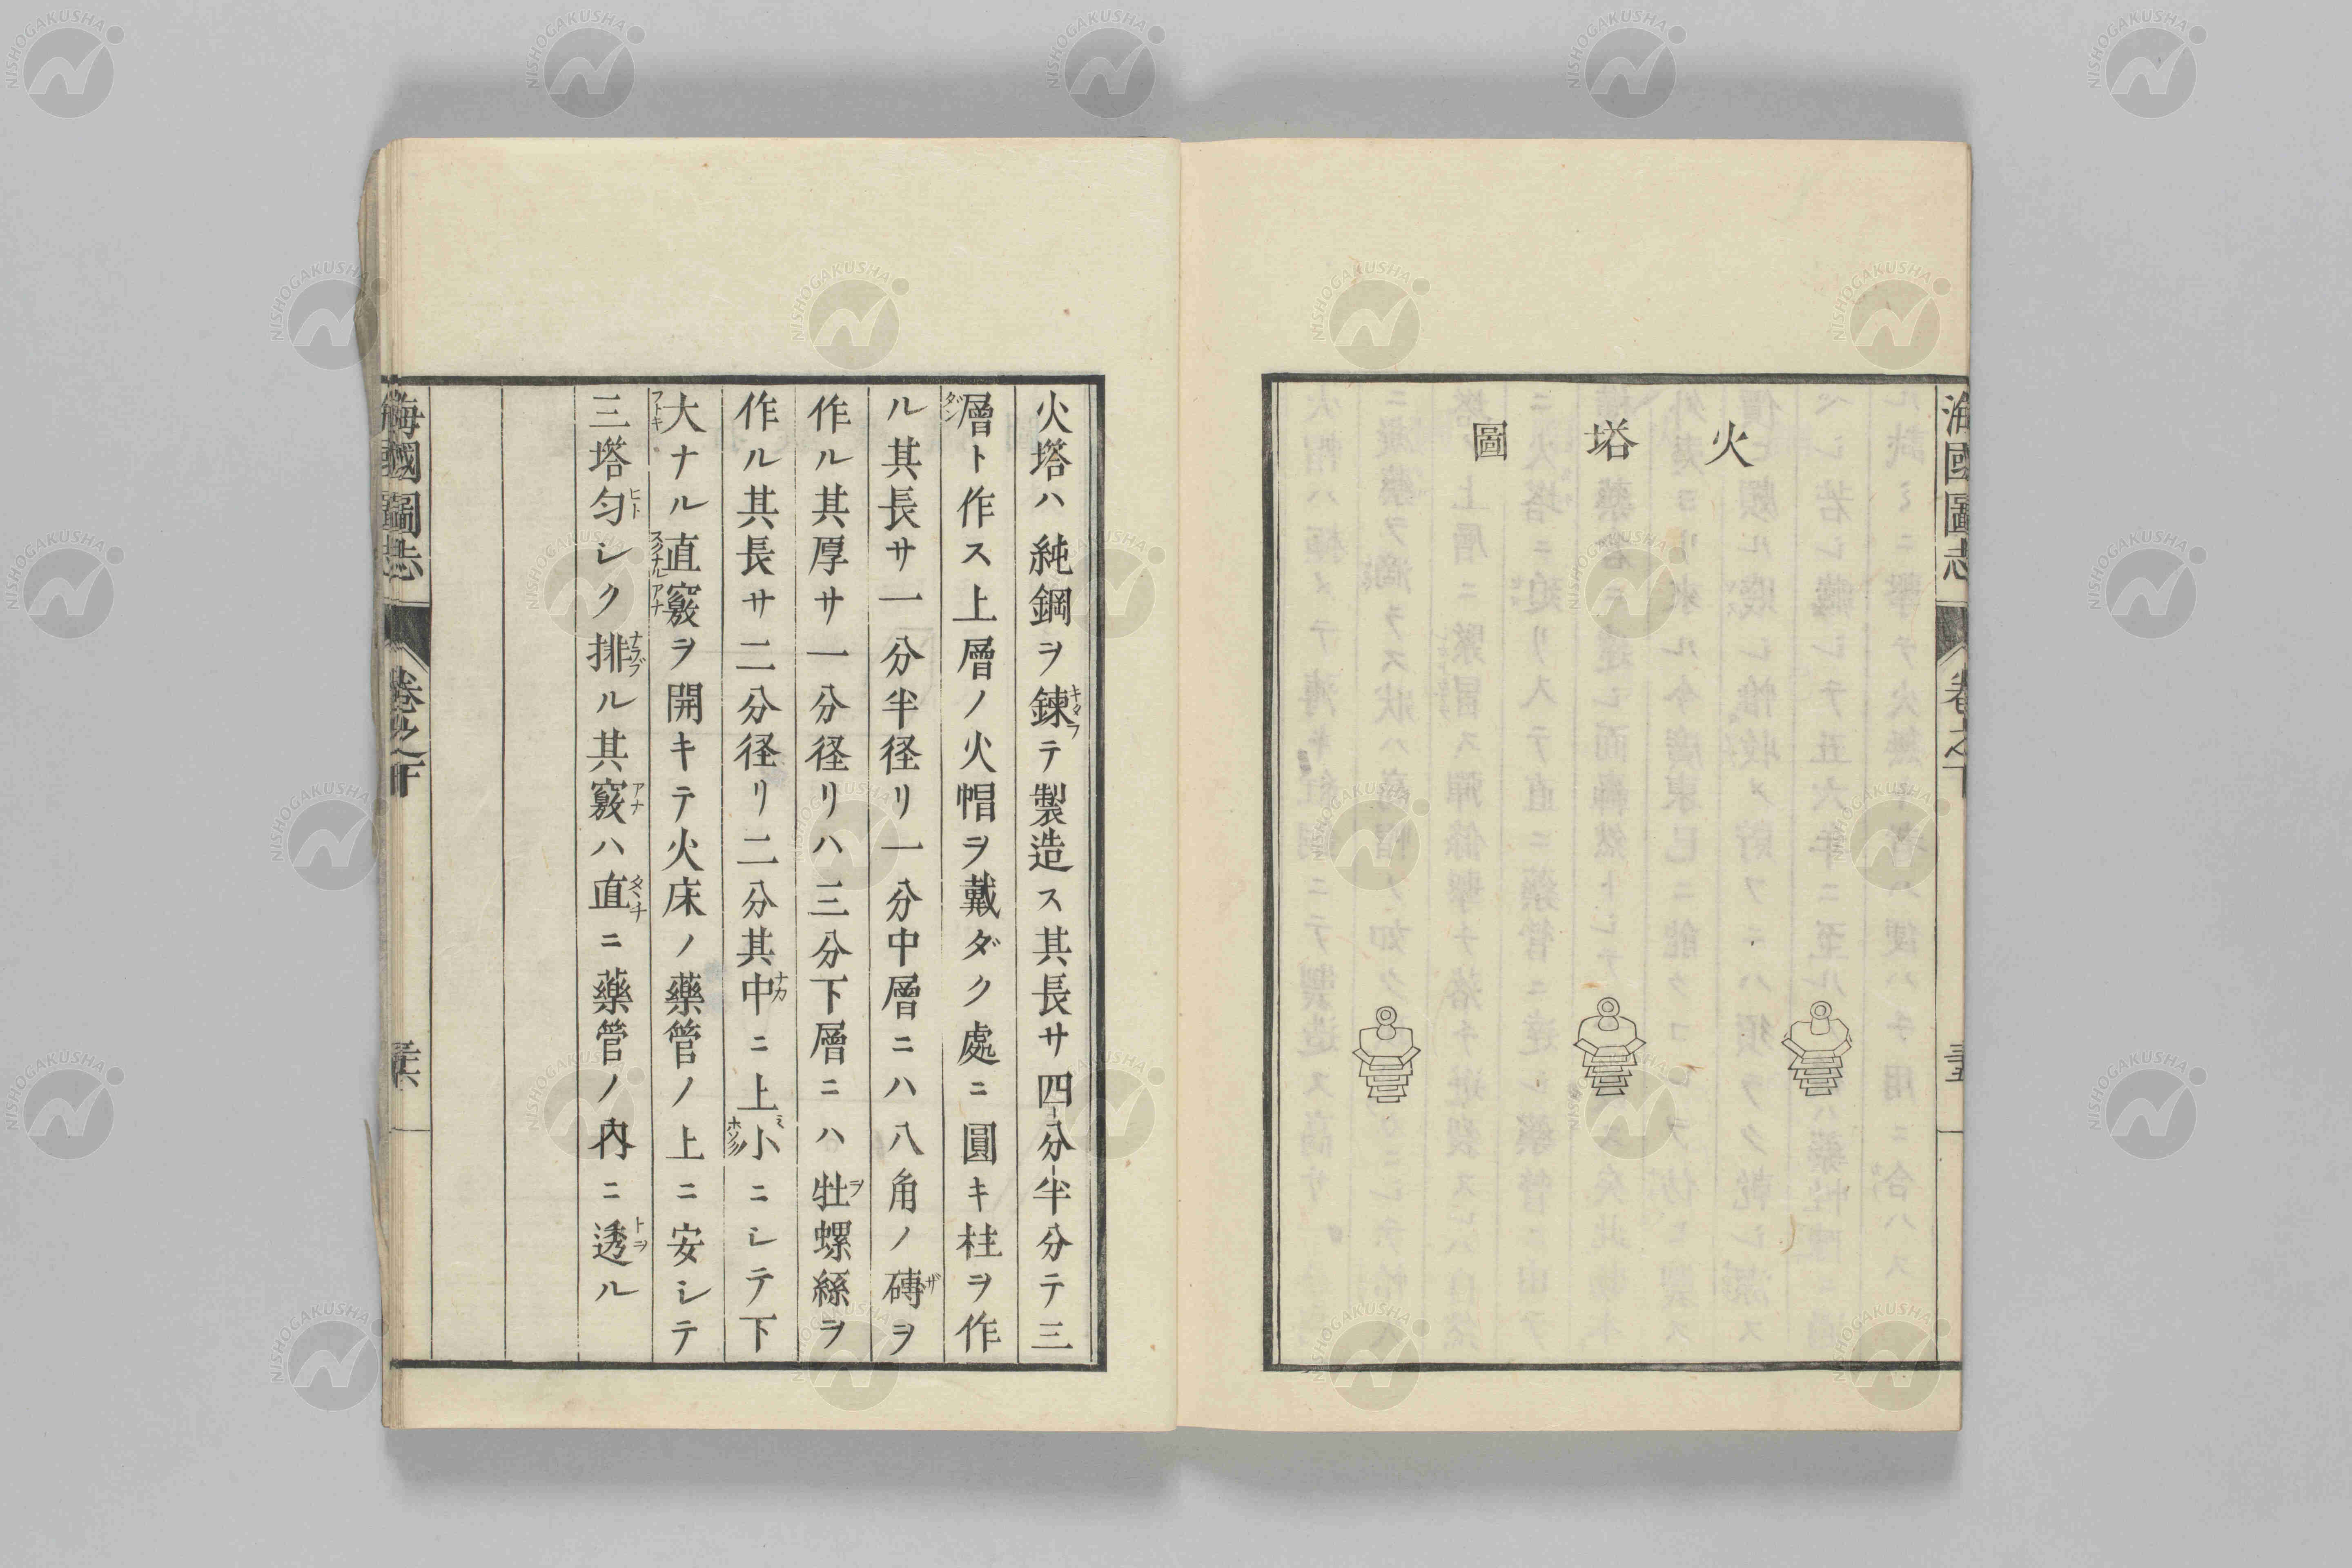 海國圖志
卷之下
火塔圖
火塔ハ純鋼ヲ鍊テ製造ス其長サ四分半分テ三
層ト作ス上層ノ火帽ヲ戴ダク處ニ圓キ柱ヲ作
ル其長サ一分半径リ一分中層ニハ八角ノ磚ヲ
作ル其厚サ一分径リハ三分下層ニハ牡螺絲ヲ
作ル其長サ二分径リ二分其中ニ上小ニシテ下
大ナル直竅ヲ開キテ火床ノ藥管ノ上ニ安シテ
三塔匀シク排ル其竅ハ直ニ藥管ノ內ニ透ル
海國圖志
卷之下
NISHOGAKUSHA